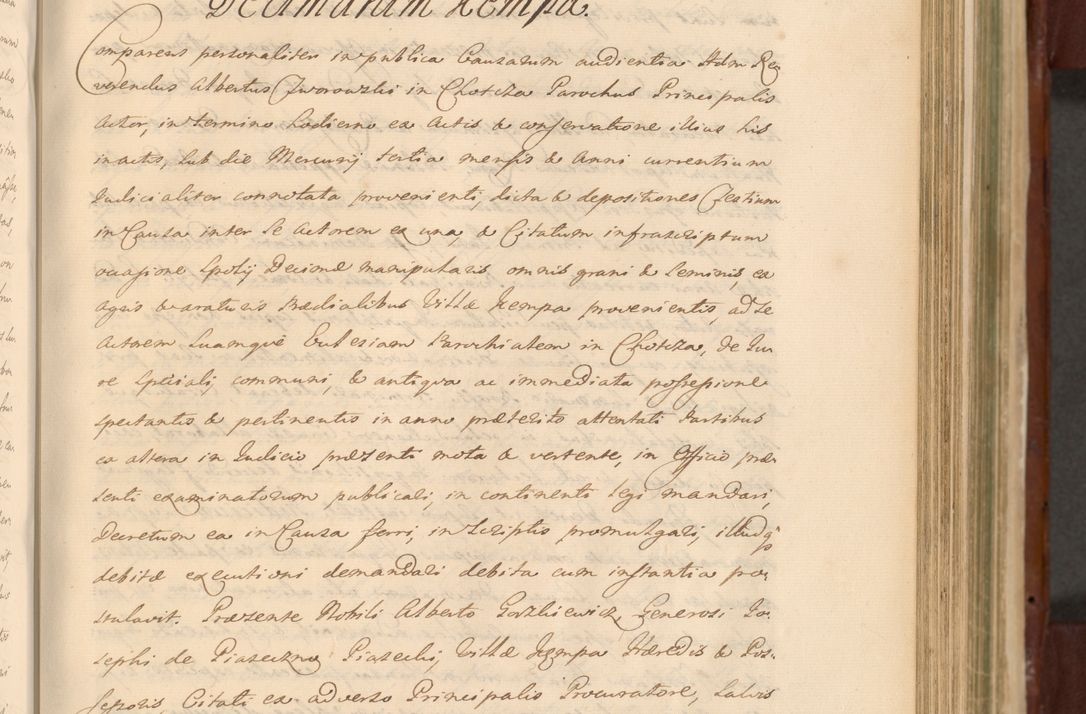 Decimarum Kempa.
Comparens personaliter in publica Causarum audientia Adm Re
verendus Albertus Czworowski in Chotcza Parochus Principalis
Actor, in termino hodierno ex Actis & conservatione illius his
in actis, sub die Mercurij tertia mensis & Anni currentium
Judicialiter connotata provenienti, dicta & depositiones Testium
in Causa inter Se Actorem ex una, & Citatum infrascriptum
occasione Spolij Decimæ manipularis omnis grani & Seminis, ex
agris & araturis Prædialibus Villæ Kempa provenientis, ad Se
Actorem Suamque Ecclesiam Parochialem in Chotcza, de Ju
re speciali, communi, & antiqva ac immediata possessione
spectantis & pertinentis in anno præterito attentati Partibus
ex altera in Judicio præsenti mota & vertente, in Officio præ
senti examinatorum publicari, in continenti legi mandari,
Decretum ea in Causa ferri, in Scriptis promulgari, illudq3
debitæ executioni demandari debita cum instantia po
stulavit. Præsente Nobili Alberto Gorzkiewicz Generosi Jo
sephi de Piaseczna Piasecki, Villæ Kempa Hæredis & Pos
sessoris Citati ex adverso Principalis Procuratore, Salvis